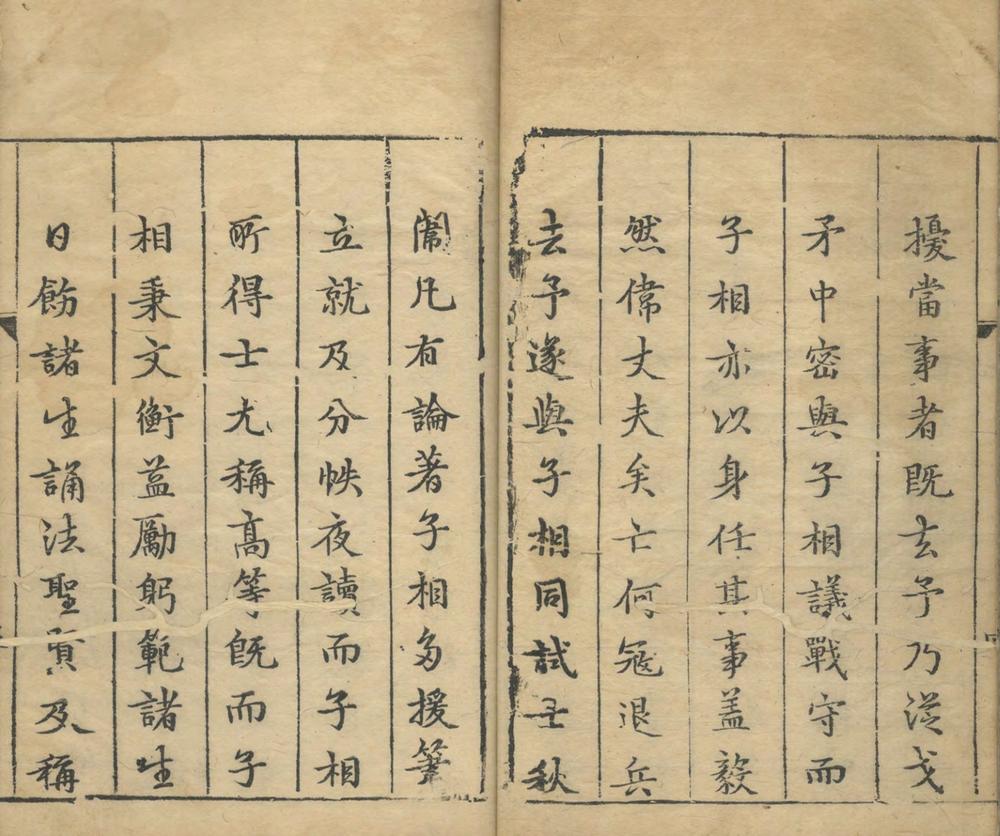 擾當事者既去予乃從戈
矛中密與子相議戰守而
子相亦以身任其事盖毅
然偉丈夫矣亡何冦退兵
去予遂與子相同試士秋
闈凡有論著子相多援筆
立就及分帙夜讀而子相
所得士尤稱高等既而子
相秉文衡益勵躬範諸生
日飭諸生誦法聖賢及稱